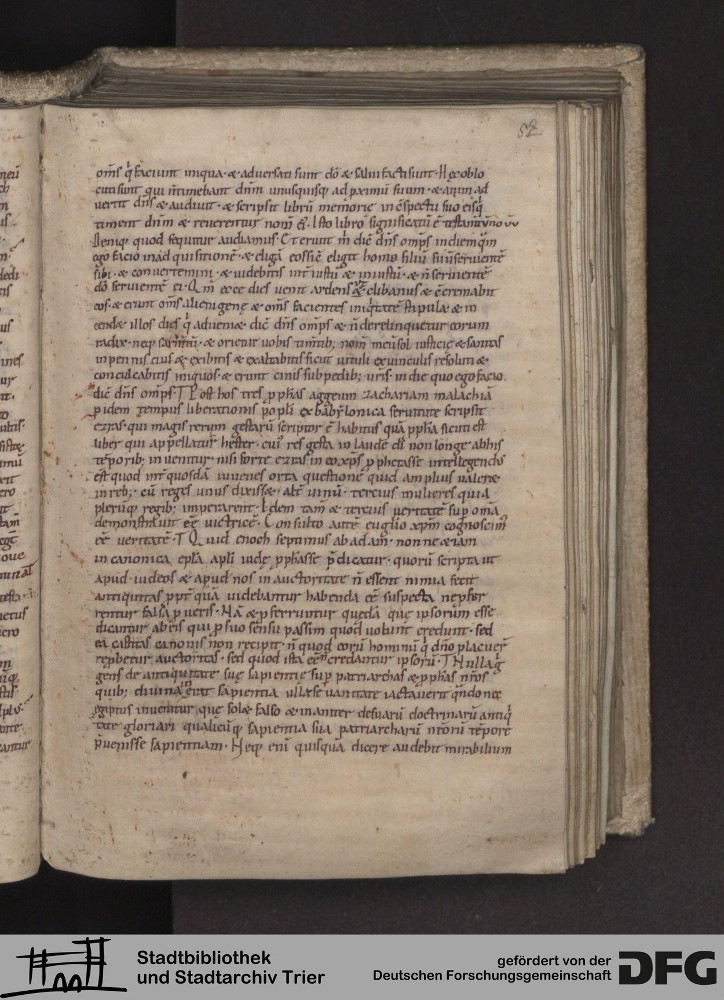 82
om̄s q̓ faciunt iniqua · & aduersati sunt dō & salui facti sunt · H ęc oblo
cuti sunt qui n̄ timebant dn̄m unusquisq; ad proximū suum · & animad
uertit dn̄s & audiuit · & scripsit librū memorię in c̄spectu suo eisq̓
timent dn̄m & reuerentur nom̄ ei᷒ · Isto libro significatū ē testam̄tū nouū
Deniq; quod sequitur audiamus · Et erunt m̄ dic̄ dn̄s omp̄s in diem q̄m
ego facio in adquisitionē · & eligā eos sic̄ eligit homo filiū suū seruientē
sibi · & conuertemini · & uidebitis int̄ iustū & iniustū · & n̄ seruientē
dō seruientē ei · Qm̄ ecce dies uenit ardens & clibanus & c̄cremabit
eos · & erunt om̄s alienigenę & om̄s facientes iniq̓tatē stipula · & in
cendet illos dies q̓ adueniet dic̄ dn̄s omp̄s & n̄ derelinquetur eorum
radix · neq; sarm̄tū · & orietur uobis tim̄tib; nom̄ meū sol iusticię & sanitas
in pennis eius & exibitis & exaltabitis sicut uituli ex uinculis resoluti &
conculcabitis iniquos · & erunt cinis sub pedib; ur̄is · in die quo ego facio
dic̄ dn̄s omp̄s · Post hos tres ꝓphetas aggeum zachariam malachiā
ꝑ idem tempus liberationis pop̄li ex babylonica seruitute scripsit
ezras · qui magis rerum gestarū scriptor ē habitus quā ꝓpheta sicuti est
liber qui appellatur hester · cui᷒ res gesta in laudē dī non longe ab his
tēporib; inuenitur · nisi forte ezras in eo xp̄m ꝓphetasse intellegendus
est quod int̄ quosdā iuuenes orta questionē quid amplius ualeret
in reb; · cū reges unus dixisset · alt̄ uinū · tercius mulieres quia
plerūq; regib; imperarent · Idem tam̄ & tercius ueritatē sup̄ omīa
demonstrauit eē uictricē · Consulto autē euglio xp̄m cognoscim᷒
eē ueritatē · Quid enoch septimus ab adam · nonne etiam
in canonica ep̄la apl̄i iudę ꝓphasse p̄dicatur · quorū scripta ut
apud iudeos & apud nos in auctoritate n̄ essent nimia fecit
antiquitas ꝓpt̄ quā uidebantur habenda eē suspecta ne ꝓfer
rentur falsa ꝓ ueris · Nā & ꝓferruntur quedā quę ipsorum esse
dicantur ab eis qui ꝓ suo sensu passim quod uolunt credunt · sed
ea castitas canonis non recipit · n̄ quod eorū hominū q̓ dn̄o placuer̄
reprobetur auctoritas · sed quod ista eē n̄ credantur ipsorū · Nulla g
gens de antiquitate suę sapientię sup̄ patriarchas & ꝓphetas nr̄os
quib; diuina inerat sapientia ulla se uanitate iactauerit q̄ndo nec
egiptus inuenitur quę solet falso & inaniter de suarū doctrinarū antiq̓
tate gloriari qualicūq; sapientia sua patriarcharū nr̄orū tēpore
p̄uenisse sapientiam · Neq; enī quisquā dicere audebit mirabilium
Stadtbibliothek
und Stadtarchiv Trier
gefördert von der
Deutschen Forschungsgemeinschaft
DFG